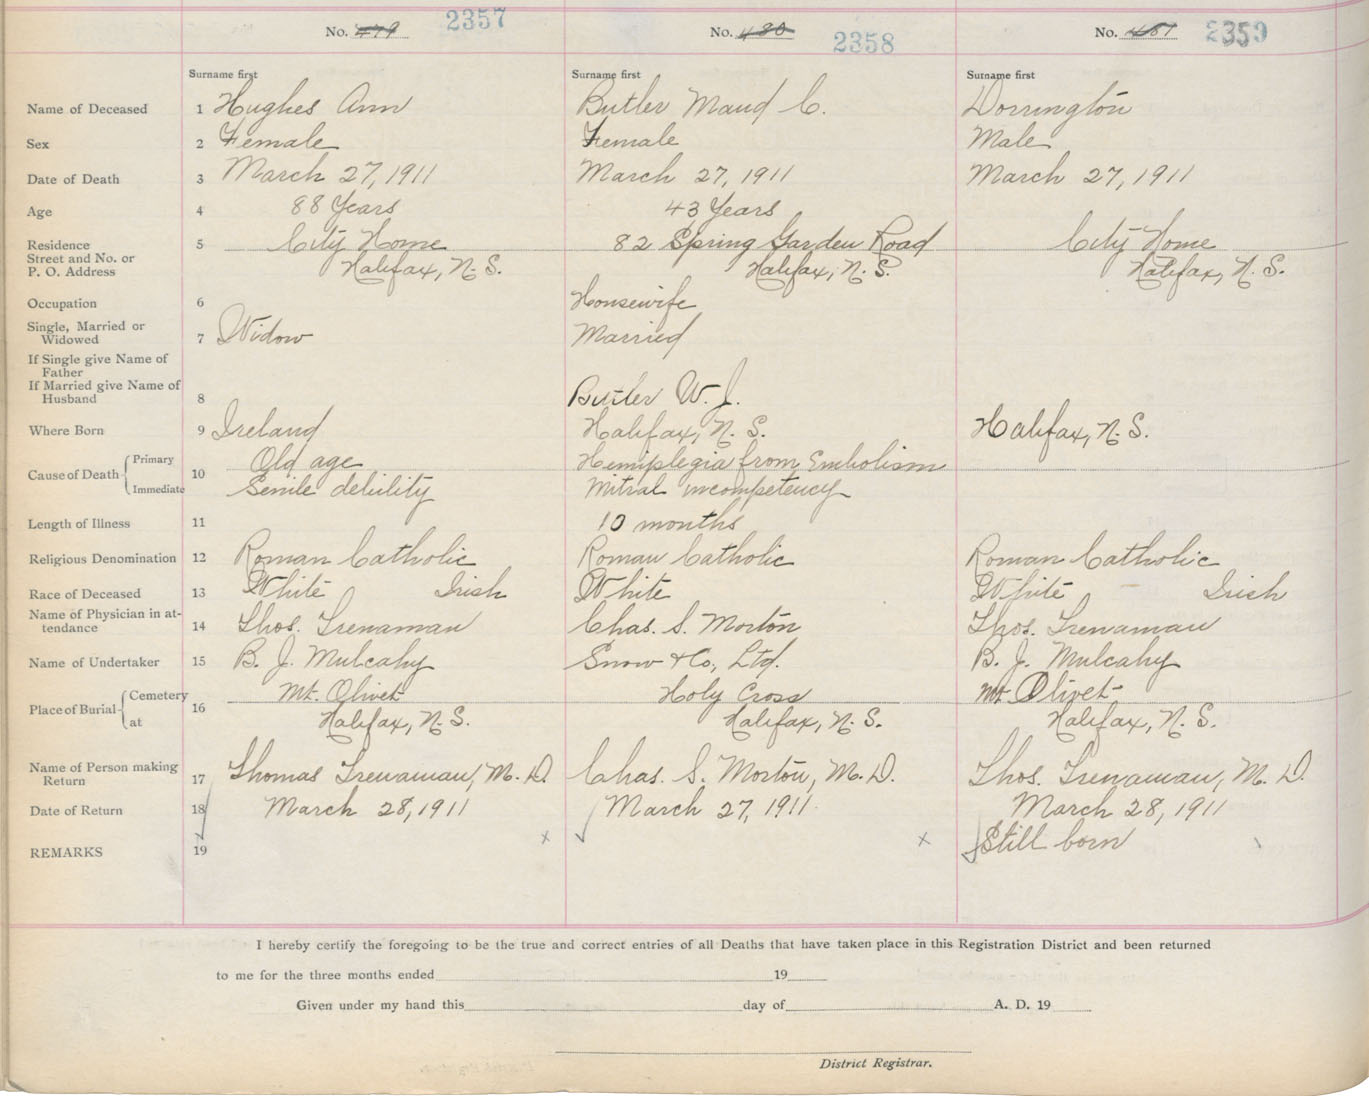 No. 479 2357 No. 480 2358 No. 481 2359
Surname first Surname first Surname first
Name of Deceased 1 Hughes Ann Butler Maud C. Dorrington
Sex 2 Female Female Male
Date of Death 3 March 27, 1911 March 27, 1911 March 27, 1911
Age 4 88 Years 43 Years
Residence 5 City Home 82 Spring Garden Road City Home
Street and No. or
P. O. Address Halifax, N. S. Halifax, N. S. Halifax, N. S.
Occupation 6 Housewife
Single, Married or
Widowed 7 Widow Married
If Single give Name of
Father
If Married give Name of
Husband 8 Butler W. J.
Where Born 9 Ireland Halifax, N. S. Halifax, N. S.
Primary Old age Hemiplegia from Embolism
Cause of Death 10
Immediate Senile debility Mitral incompetency
Length of Illness 11 10 months
Religious Denomination 12 Roman Catholic Roman Catholic Roman Catholic
Race of Deceased 13 White Irish White White Irish
Name of Physician in at-
tendance 14 Thos. Trenaman Chas. S. Morton Thos. Trenaman
Name of Undertaker 15 B. J. Mulcahy Snow & Co, Ltd. B. J. Mulcahy
Cemetery Mt. Olivet Holy Cross Mt. Olivet
Place of Burial 16
at Halifax, N. S. Halifax, N. S. Halifax, N. S.
Name of Person making
Return 17 Thomas Trenaman, M. D. Chas. S. Morton, M. D. Thos. Trenaman, M. D.
Date of Return 18 March 28, 1911 March 27, 1911. March 28, 1911
REMARKS 19 x x Still born
I hereby certify the foregoing to be the true and correct entries of all Deaths that have taken place in this Registration District and been returned
to me for the three months ended 19
Given under my hand this day of A. D. 19
District Registrar.